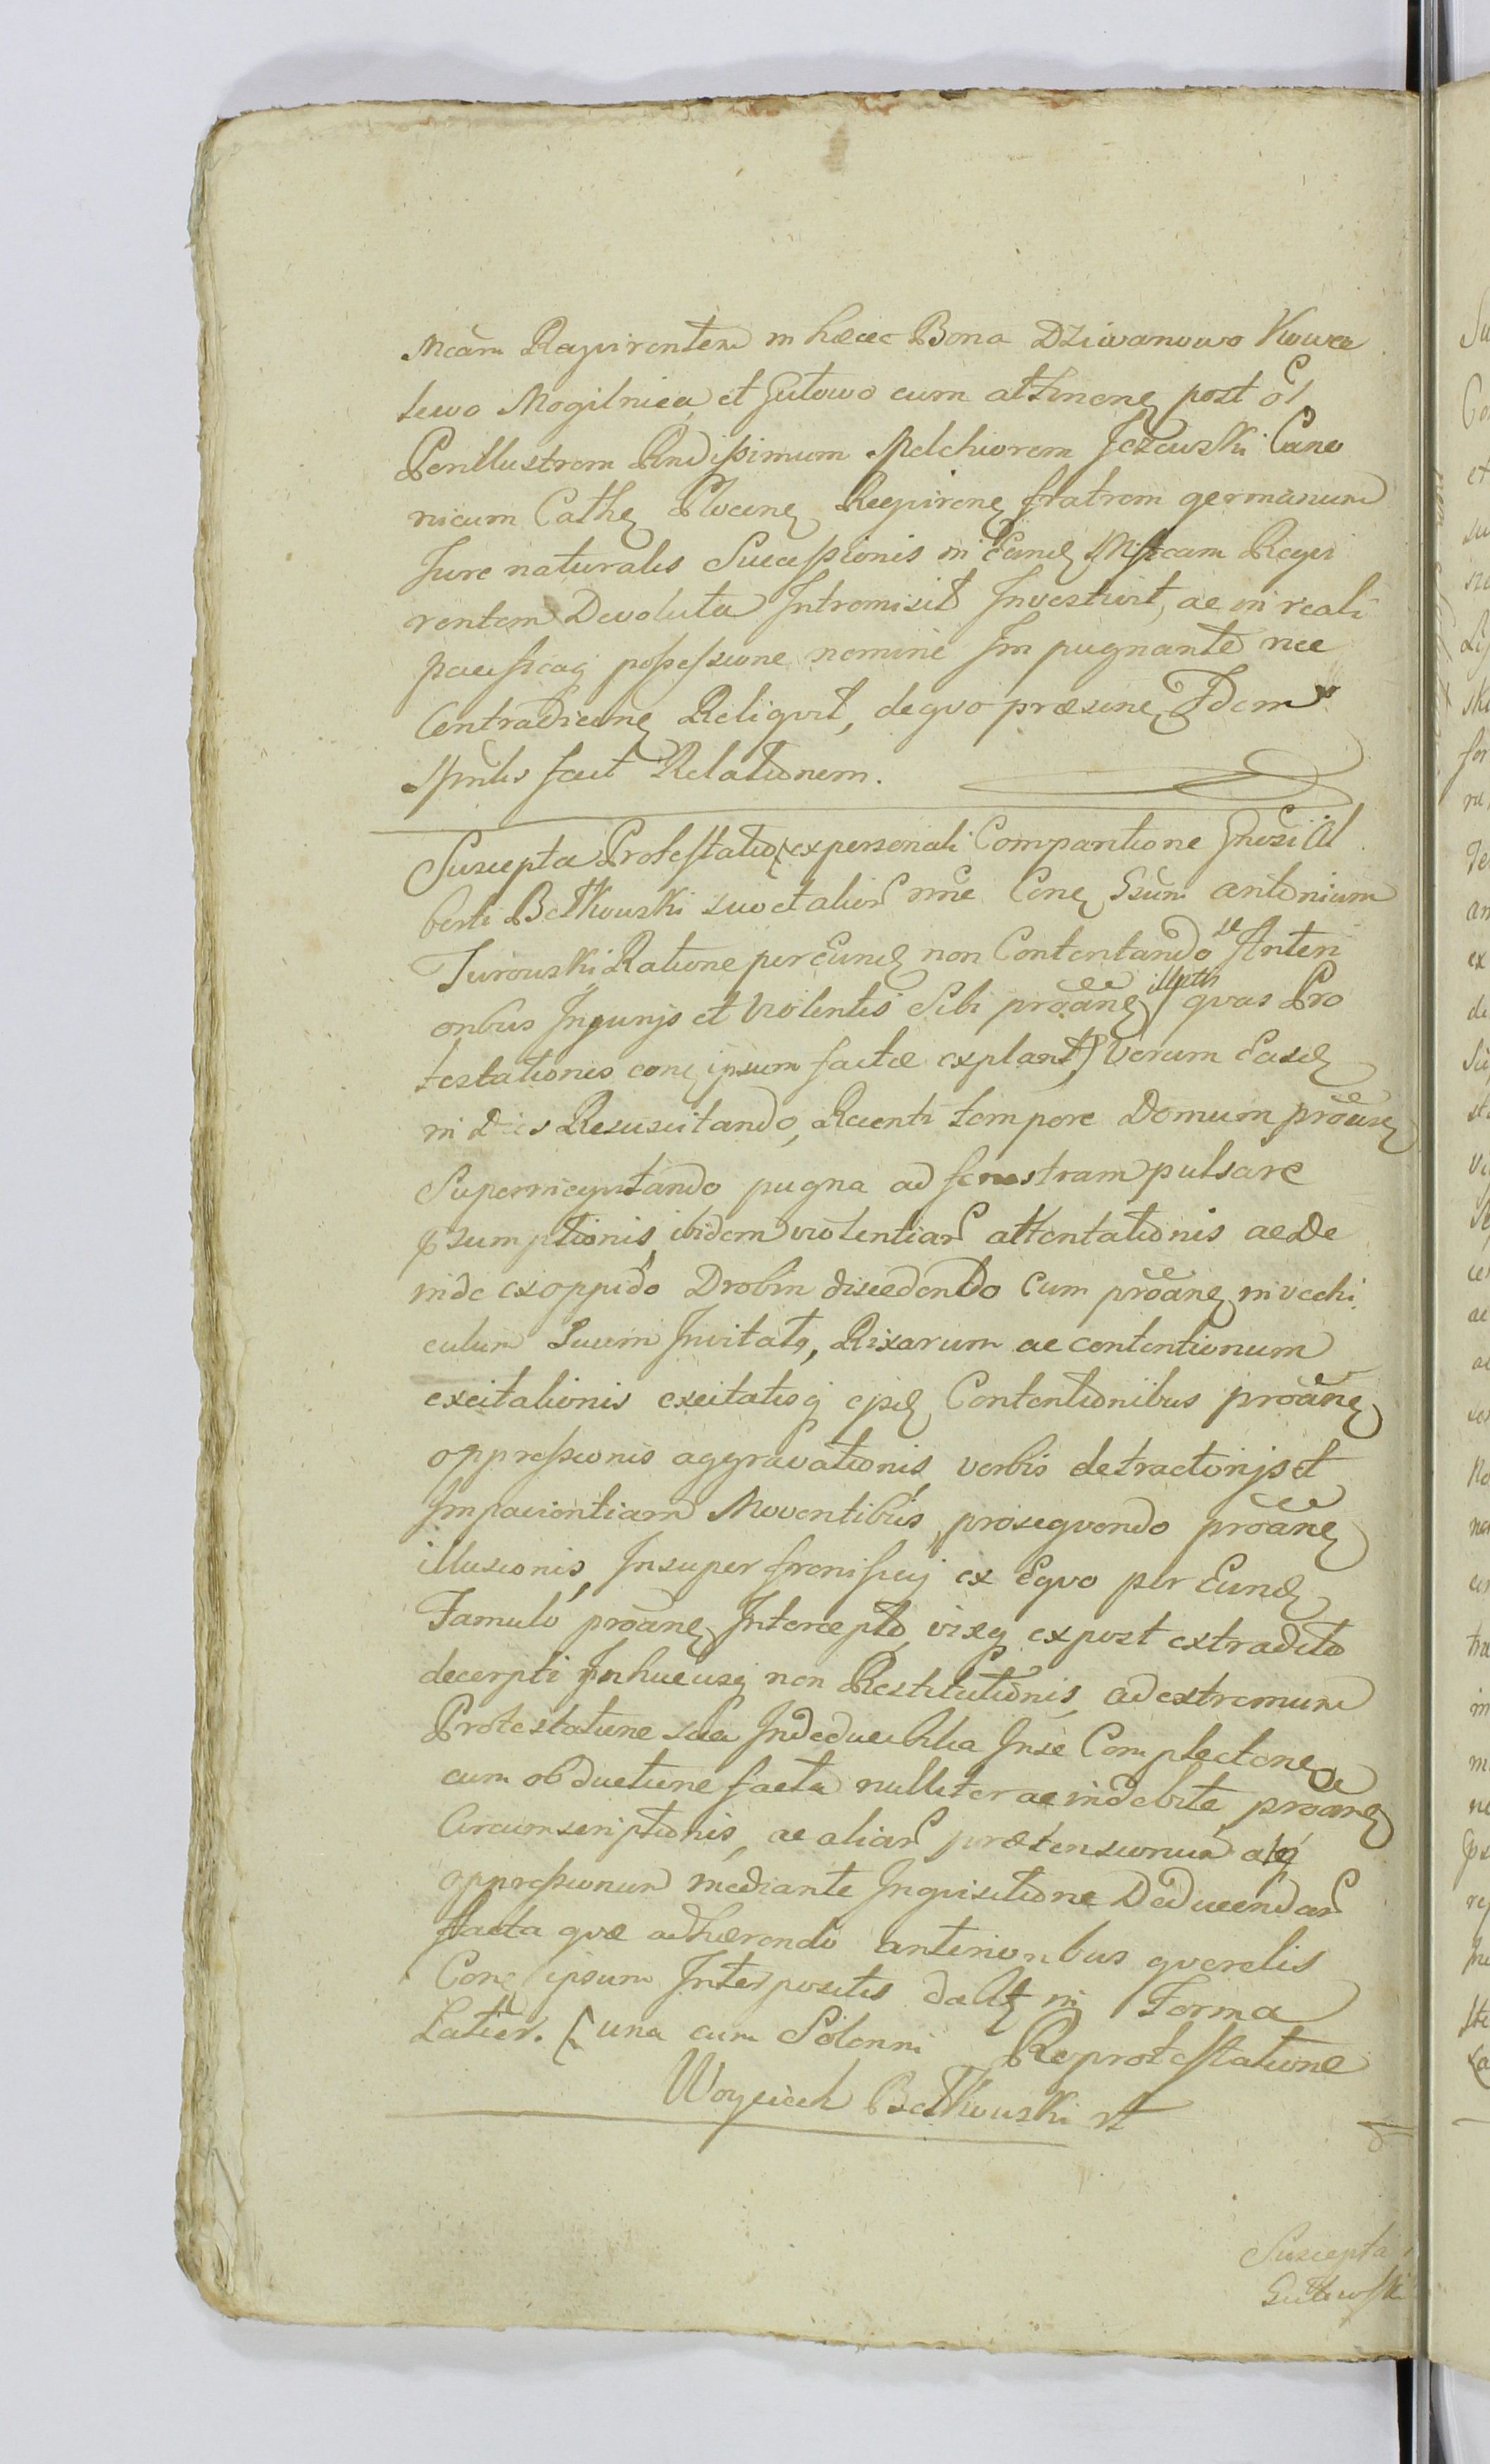 Mcam Reqvirentem in hæcce Bona Dziwanowo Kowa
lewo Mogilnica et Gutowo cum attinenc post ol
Perillustrem Rndissimum Melchiorem Jeżewski Cano
nicum Cathe Plocenc Reqvirenc fratrem germanum
Jure naturalis Successionis in Eand Mficam Reqvi
rentem Devoluta Intromisit Investivit, ac in reali
pacificaq possessione nemine Impugnante nec
Contradicenc Reliqvit, de qvo præsenc Idem
Mnlis facit Relationem.
Suscepta Protestatio ex personali Comparitione Gnosi Al
berti Betkowski suo et alior nne Conc Gsum antonium
Turowski Ratione per Eund non Contentando se Anteri
oribus Injurijs et violentis Sibi proanc illatis qvas Pro
testationes conc ipsum factæ explant) verum Easd
in Dies Resuscitando, Recenti tempore Domum proanc
Supernieqvitando pugna ad fenestram pulsare
psumptionis, ibidem violentiar attentationis ac De
inde ex oppido Drobin discedendo cum proanc in vechi
culum Suum Invitato, Rixarum ac contentionum
excitationis excitatisq ejsd Contentionibus proanc
oppressionis aggravationis, verbis detractorijs et
Impacientiam Moventibus, proseqvendo proanc
illusionis, Insuper frenificij ex Eqvo per Eund
Famulo proanc Intercepto, vixq expost extradito
decerpti Inhucusq non Restitutionis, ad extremum
Protestatione sua Indeducibilia Inse Complectenc ac
cum obductione facta nulliter ac indebite proanc
Circumscriptionis, ac aliar prætensionum atq
oppressionum mediante Inqvisitione Deducendar
facta qvæ adhærendo anterioribus qverelis
Conc ipsum Interpositis dabit in Forma
Latior. una cum Solenni Reprotestatione
Woyciech Betkowski
Suscepta
Gutowski